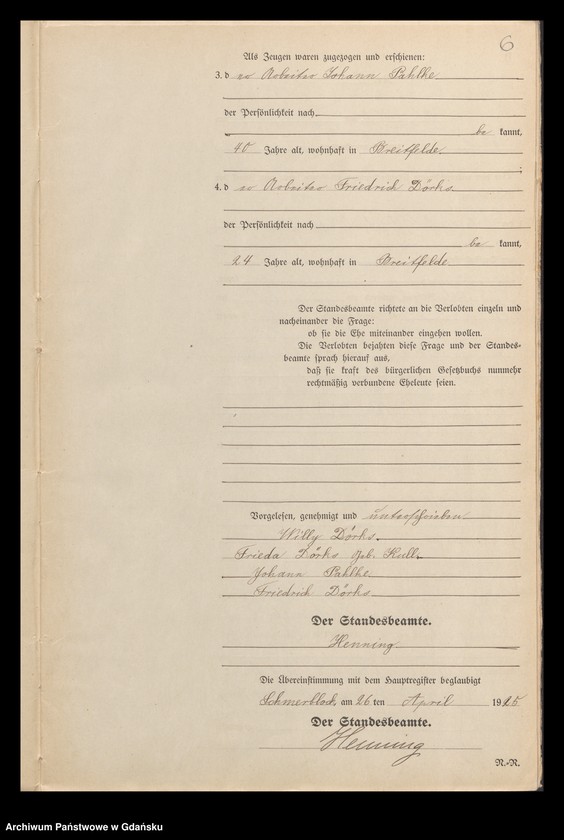 6
Als Zeugen waren zugezogen und erschienen:
3. d er Arbeiter Johann Pahlke
der Persönlichkeit nach
be kannt,
40 Jahre alt, wohnhaft in Breitfelde
4. d er Arbeiter Friedrich Dörks
der Persönlichkeit nach
be kannt,
24 Jahre alt, wohnhaft in Breitfelde
Der Standesbeamte richtete an die Verlobten einzeln und
nacheinander die Frage:
ob sie die Ehe miteinander eingehen wollen.
Die Verlobten bejahten diese Frage und der Standes-
beamte sprach hierauf aus,
daß sie kraft des bürgerlichen Gesetzbuchs nunmehr
rechtmäßig verbundene Eheleute seien.
Vorgelesen, genehmigt und unterschrieben
Willy Dörks.
Frieda Dörks geb. Kull.
Johann Pahlke
Friedrich Dörks
Der Standesbeamte.
Henning
Die Übereinstimmung mit dem Hauptregister beglaubigt
Schmerblock, am 26 ten April 1925
Der Standesbeamte.
Henning
N.-R.
Archiwum Państwowe w Gdańsku